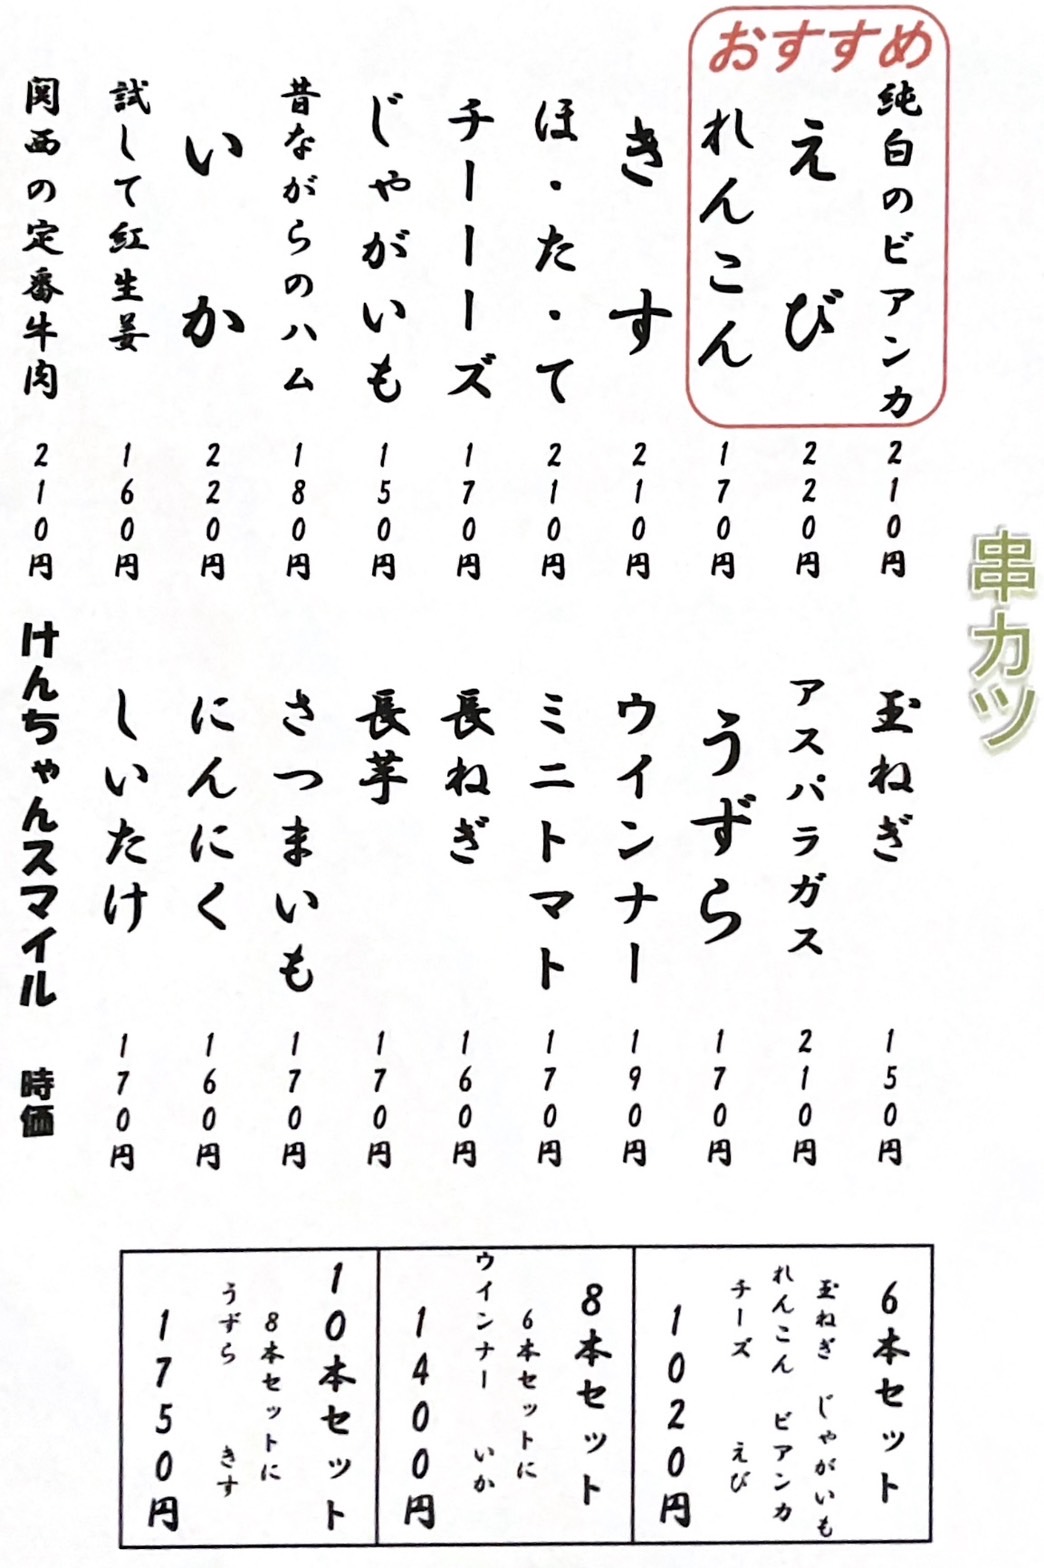 串カツ
おすすめ
純白のビアンカ 210円
えび 220円
れんこん 170円
きす 210円
ほ・た・て 210円
チーーーズ 170円
じゃがいも 150円
昔ながらのハム 180円
いか 220円
試して紅生姜 160円
関西の定番牛肉 210円
玉ねぎ 150円
アスパラガス 210円
うずら 170円
ウインナー 190円
ミニトマト 170円
長ねぎ 160円
長芋 170円
さつまいも 170円
にんにく 160円
しいたけ 170円
けんちゃんスマイル 時価
6本セット
玉ねぎ じゃがいも
れんこん ビアンカ
チーズ えび
1020円
8本セット
6本セットに
ウインナー いか
1400円
10本セット
8本セットに
うずら きす
1750円